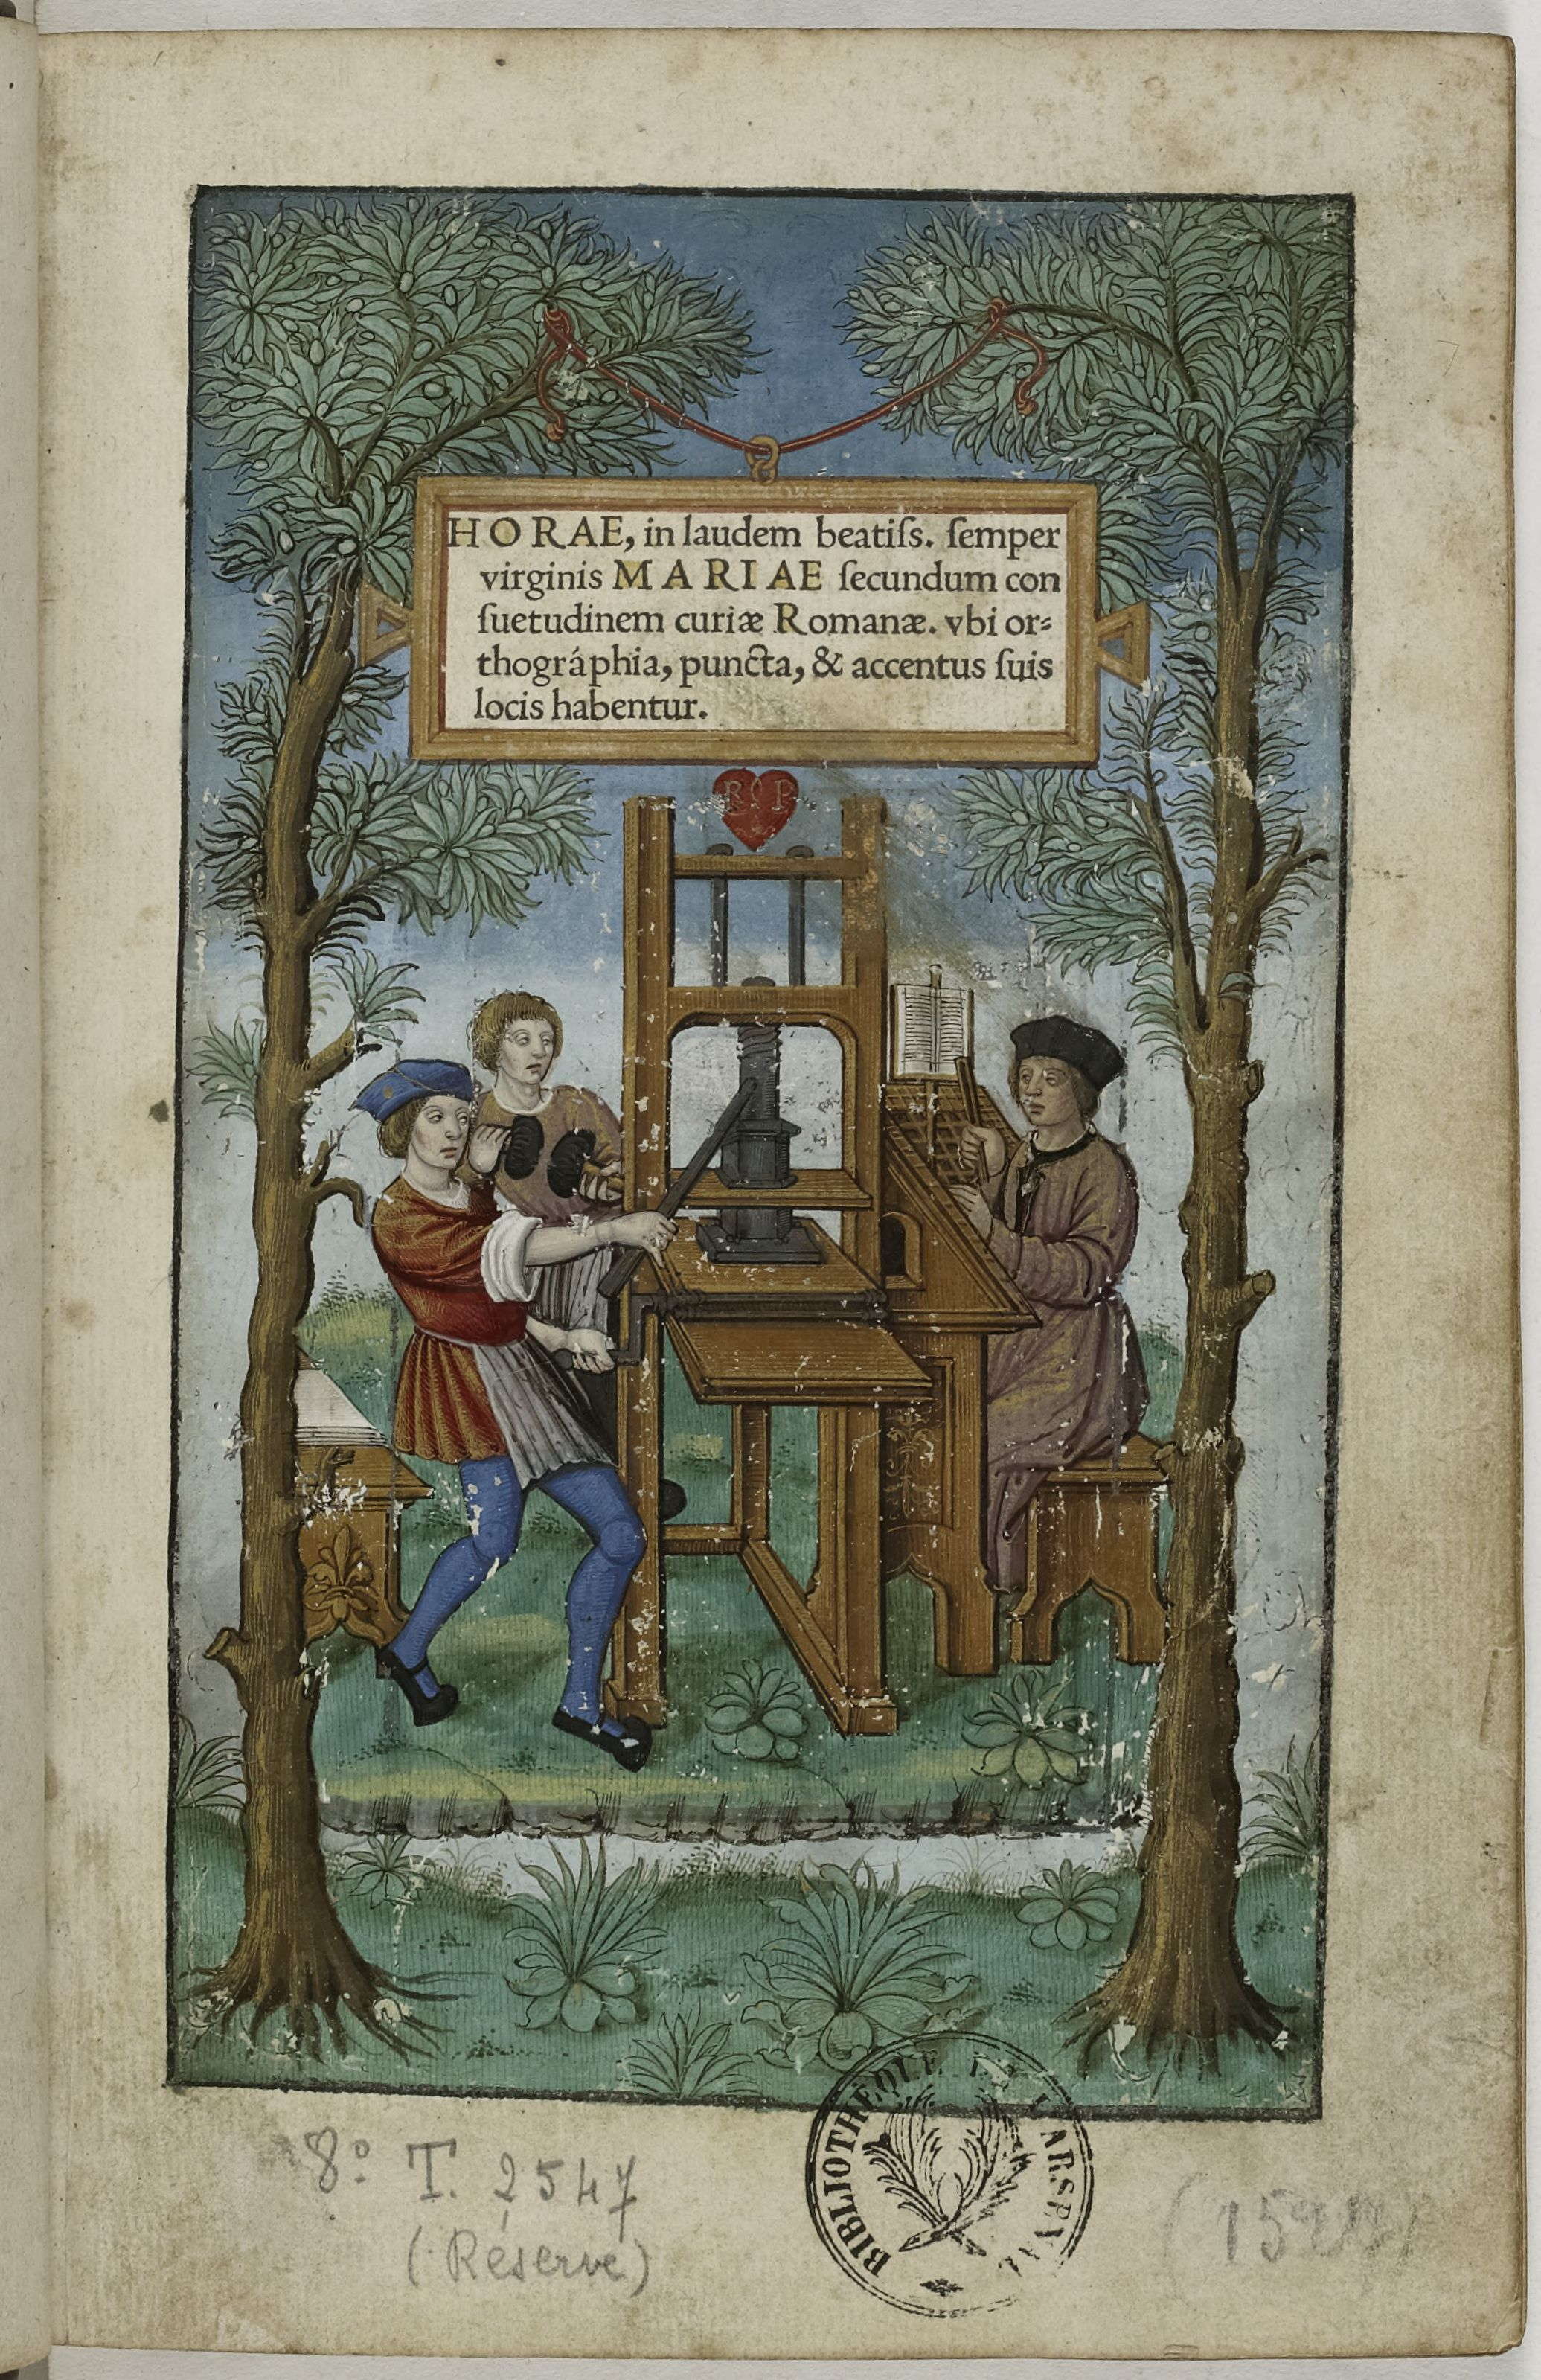 HORAE, in laudem beatiſs. ſemper
virginis MARIAE ſecundum con
ſuetudinem curiæ Romanæ. vbi or⸗
thográphia, puncta, & accentus ſuis
locis habentur.
R P
8º T. 2547
(Réserve)
BIBLIOTHÈQUE DE L'ARSENAL